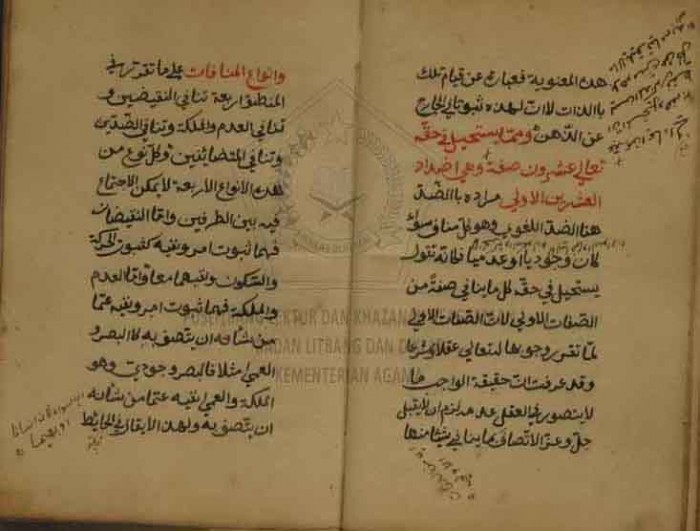 هذه المعنوية فعبارة عن قيام تلك
بالذات لان لهذه ثبوتا في الخارج
عن الذهن ومما يستحيل في حقه
تعالى عشرون صفة وهي اضداد
العشرين الاولى مراده بالضد
هنا الضد اللغوي وهو كل مناف سواء
كان وجوديا او عدميا فكانه نقول
يستحيل في حقه كل ما ينافي صفة من
الصفات الاولى لان الصفات الاولى
لما تقرر وجوبها له تعالى عقلا وشرعا
وقد عرفت ان حقيقة الواجب ما
لا يتصور في العقل عدمه لزم ان لا يقبل
جل وعز الاتصاف بما ينافي شيئا منها
وانواع المنافات على ما تقرر في
المنطق اربعة تنافي النقيضين و
تنافي العدم والملكة وتنافي الضدين
وتنافي المتضائفين وكل نوع من
هذه الانواع الاربعة لا يمكن الاجتماع
فيه بين الطرفين واما النقيضان
فهما ثبوت امر ونفيه كثبوت الحركة
والسكون ونفيهما معا واما العدم
والملكة فهما ثبوت امر ونفيه عما
من شانه ان يتصف به كالبصر و
العمى مثلا فالبصر وجودي وهو
الملكة والعمى نفيه عما من شانه
ان يتصف به ولهذا لا يقال في الحائط
PUSLITBANG LEKTUR DAN KHAZANAH
BADAN LITBANG DAN DIKLAT
KEMENTERIAN AGAMA